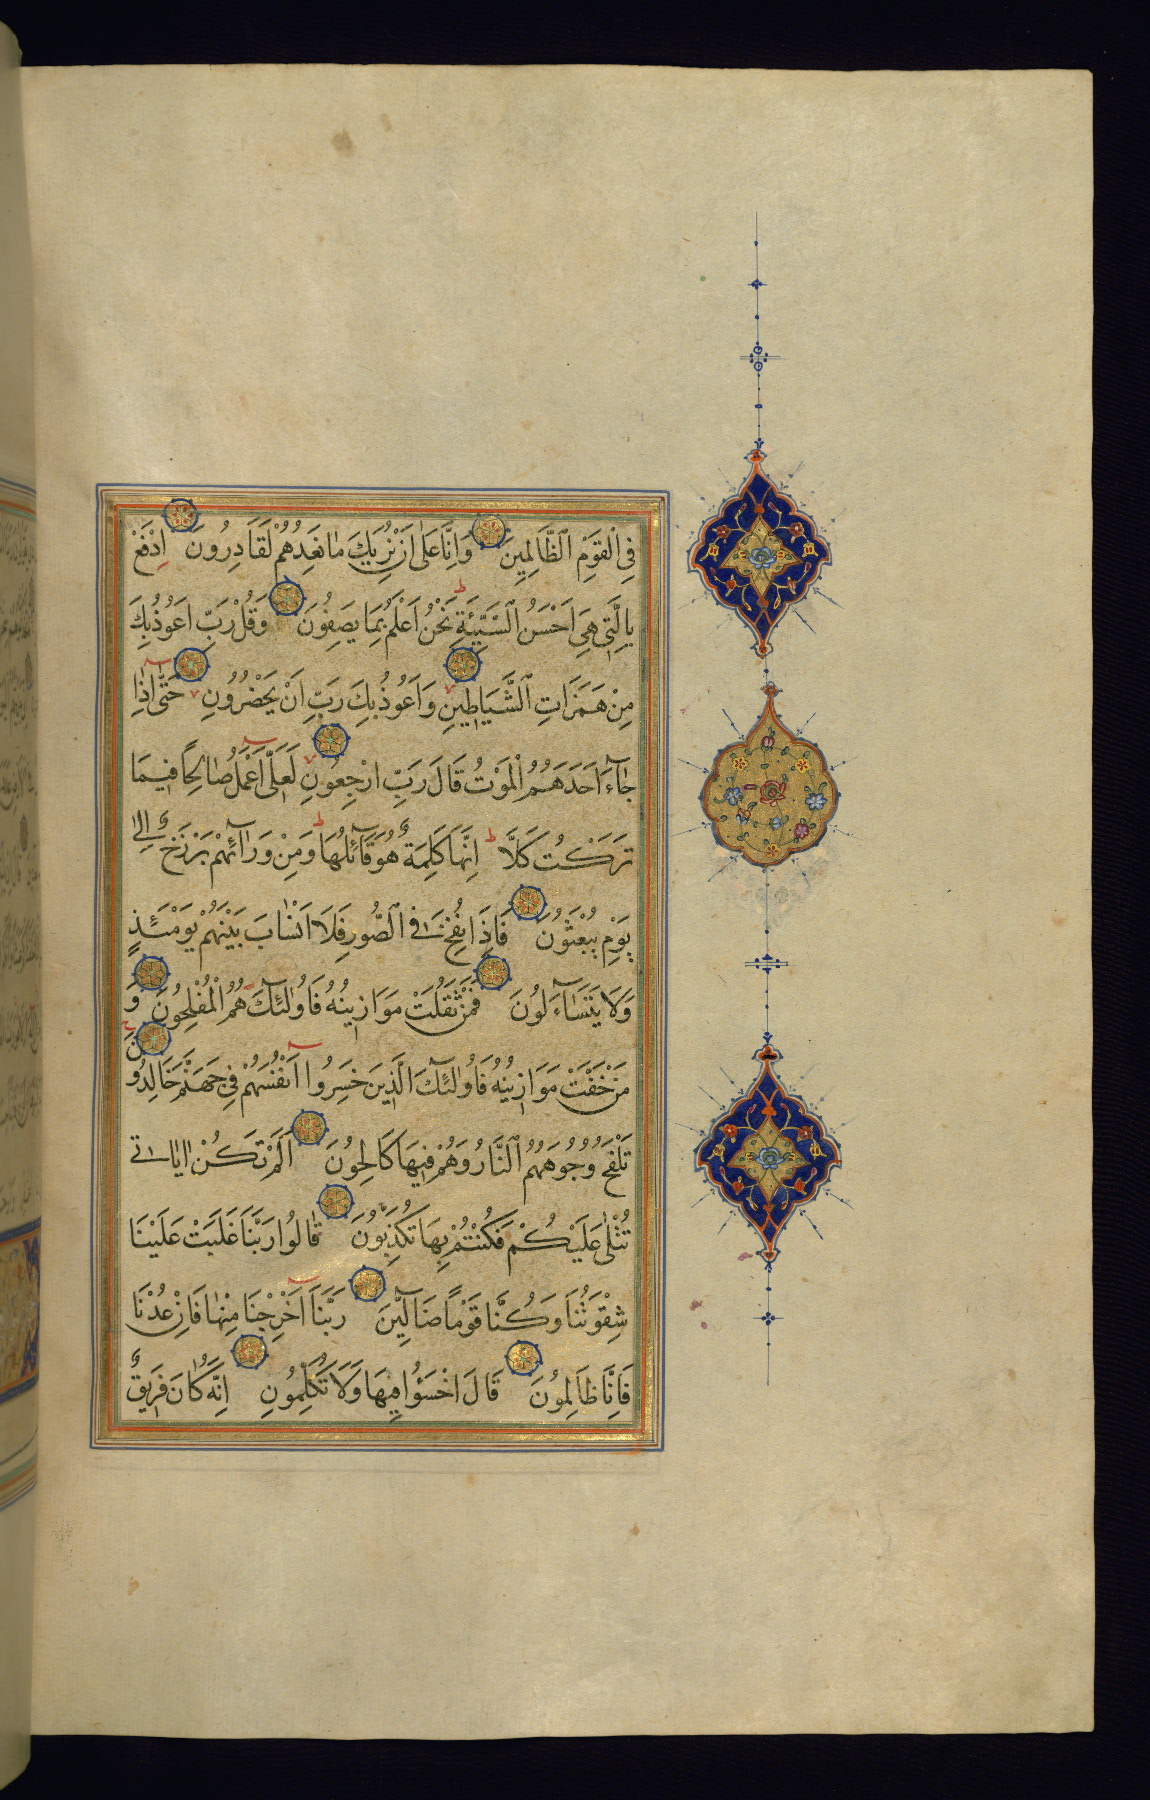 فِى الْقَوْمِ الظَّالِمِينَ وَاِنَّا عَلٰٓى اَنْ نُرِيَكَ مَا نَعِدُهُمْ لَقَادِرُونَ اِدْفَعْ
بِالَّتِى هِىَ اَحْسَنُ السَّيِّئَةِ نَحْنُ اَعْلَمُ بِمَا يَصِفُونَ وَقُلْ رَبِّ اَعُوذُ بِكَ
مِنْ هَمَزَاتِ الشَّيَاطِينِ وَاَعُوذُ بِكَ رَبِّ اَنْ يَحْضُرُونِ حَتّٰٓى اِذَا
جَآءَ اَحَدَهُمُ الْمَوْتُ قَالَ رَبِّ ارْجِعُونِ لَعَلِّىٓ اَعْمَلُ صَالِحًا فِيمَا
تَرَكْتُ كَلَّا اِنَّهَا كَلِمَةٌ هُوَ قَآئِلُهَا وَمِنْ وَرَآئِهِمْ بَرْزَخٌ اِلٰى
يَوْمِ يُبْعَثُونَ فَاِذَا نُفِخَ فِى الصُّورِ فَلَآ اَنْسَابَ بَيْنَهُمْ يَوْمَئِذٍ
وَلَا يَتَسَآءَلُونَ فَمَنْ ثَقُلَتْ مَوَازِينُهُ فَاُولٰٓئِكَ هُمُ الْمُفْلِحُونَ وَ
مَنْ خَفَّتْ مَوَازِينُهُ فَاُولٰٓئِكَ الَّذِينَ خَسِرُوٓا اَنْفُسَهُمْ فِى جَهَنَّمَ خَالِدُونَ
تَلْفَحُ وُجُوهَهُمُ النَّارُ وَهُمْ فِيهَا كَالِحُونَ اَلَمْ تَكُنْ اٰيَاتِى
تُتْلٰى عَلَيْكُمْ فَكُنْتُمْ بِهَا تُكَذِّبُونَ قَالُوا رَبَّنَا غَلَبَتْ عَلَيْنَا
شِقْوَتُنَا وَكُنَّا قَوْمًا ضَآلِّينَ رَبَّنَآ اَخْرِجْنَا مِنْهَا فَاِنْ عُدْنَا
فَاِنَّا ظَالِمُونَ قَالَ اخْسَؤُا فِيهَا وَلَا تُكَلِّمُونِ اِنَّهُ كَانَ فَرِيقٌ